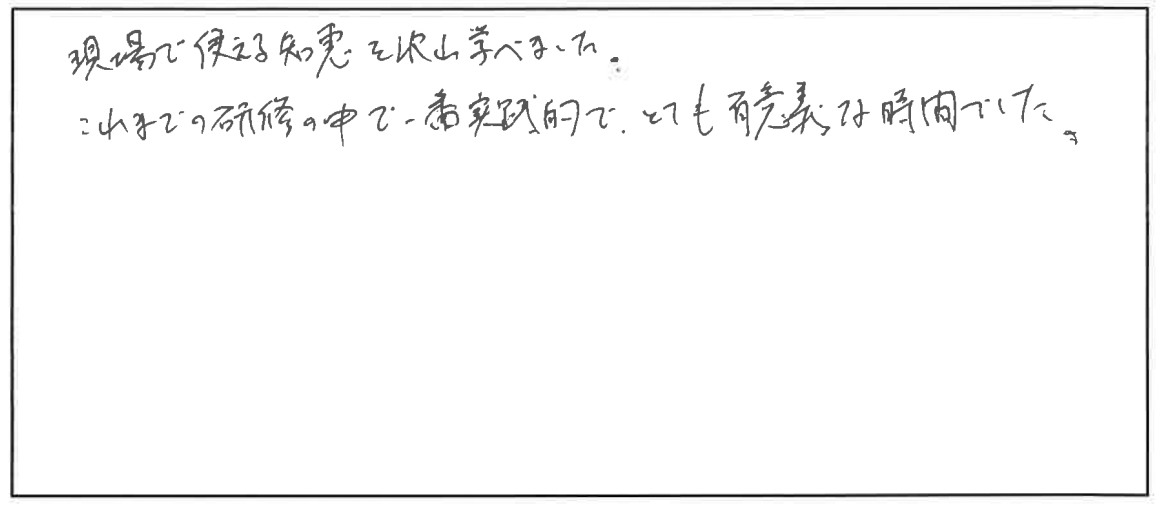 現場で使える知恵を沢山学べました。
これまでの研修の中で一番実践的で、とても有意義な時間でした。